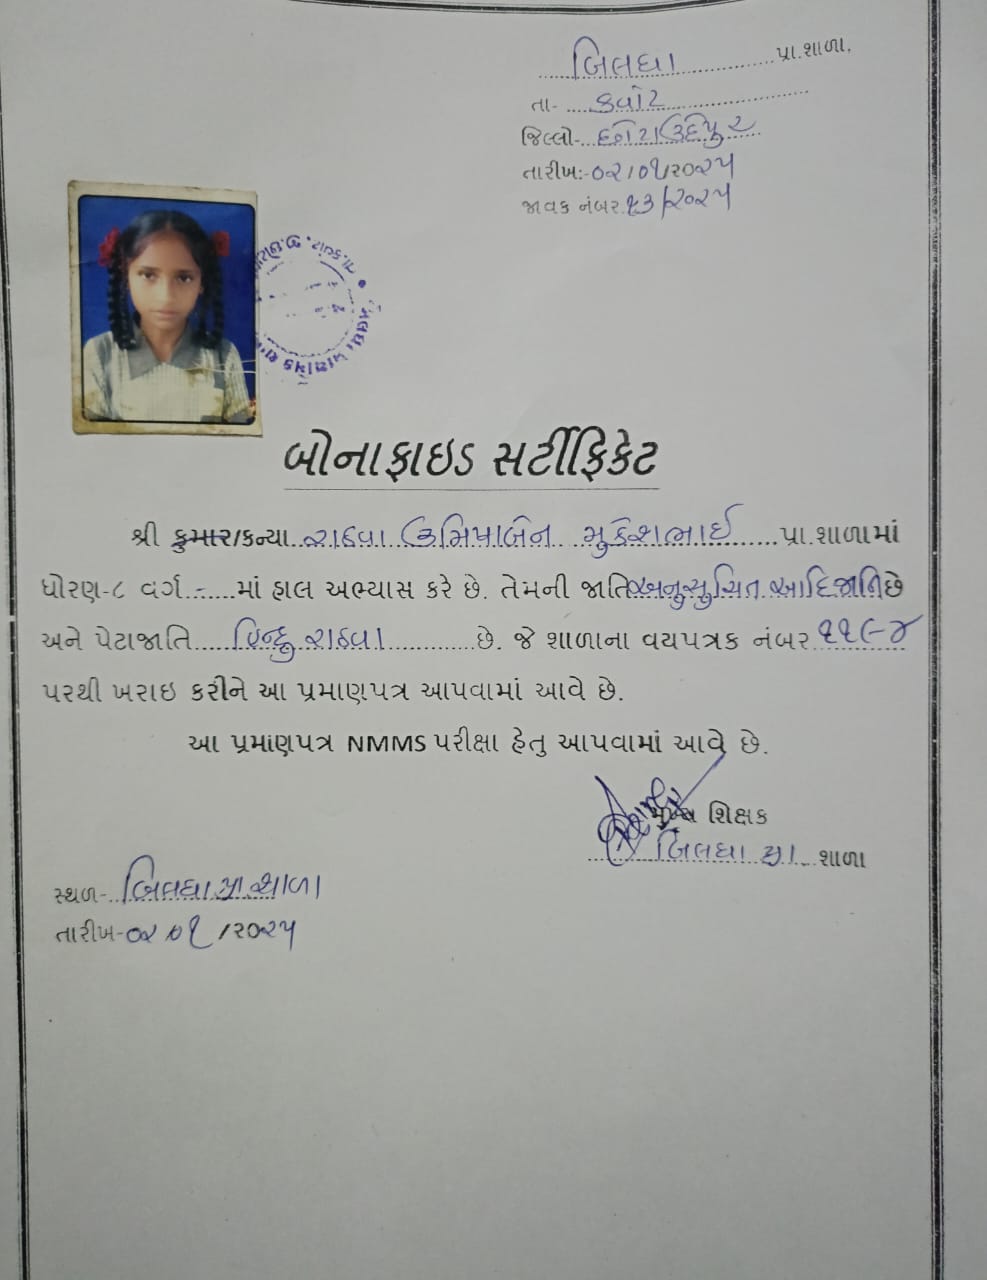 બિલધા પ્રા.શાળા.
તા- કવાંટ
જિલ્લો- છોટાઉદેપુર
તારીખ:- ૦૨/૦૧/૨૦૨૫
જાવક નંબર ૧૩/૨૦૨૫
બોનાફાઇડ સર્ટીફિકેટ
શ્રી કુમાર/કન્યા રાઠવા ઉર્મિષાબેન મુકેશભાઈ પ્રા.શાળામાં
ધોરણ-૮ વર્ગ - માં હાલ અભ્યાસ કરે છે. તેમની જાતિ અનુસુચિત આદિજાતિ છે
અને પેટાજાતિ હિન્દુ રાઠવા છે. જે શાળાના વયપત્રક નંબર ૧૧૯૪
પરથી ખરાઇ કરીને આ પ્રમાણપત્ર આપવામાં આવે છે.
આ પ્રમાણપત્ર NMMS પરીક્ષા હેતુ આપવામાં આવે છે.
મુખ્ય શિક્ષક
બિલધા પ્રા. શાળા
સ્થળ- બિલધા પ્રા શાળા
તારીખ- ૦૨/૦૧/૨૦૨૫